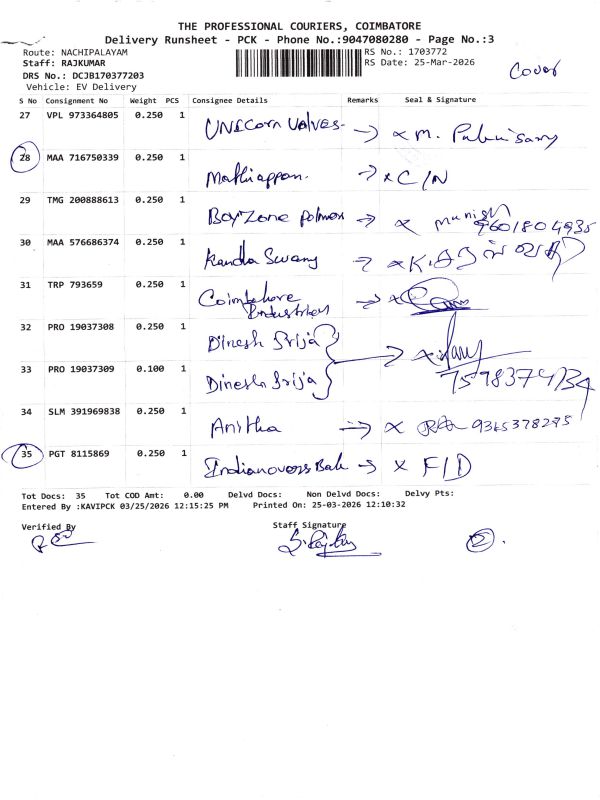 THE PROFESSIONAL COURIERS, COIMBATORE
Delivery Runsheet - PCK - Phone No.:9047080280 - Page No.:3
Route: NACHIPALAYAM RS No.: 1703772
Staff: RAJKUMAR RS Date: 25-Mar-2026
Cover
DRS No.: DCJB170377203
Vehicle: EV Delivery
S No Consignment No Weight PCS Consignee Details Remarks Seal & Signature
27 VPL 973364805 0.250 1 UNICorn Valves- → x M.
28 MAA 716750339 0.250 1 Mathiappan. → x C/N
29 TMG 200888613 0.250 1 BoyZone → x Munish
9601804935
30 MAA 576686374 0.250 1 Kandha Swamy → x
31 TRP 793659 0.250 1 Coimbatore Industries → x
32 PRO 19037308 0.250 1 Dinesh Srija
33 PRO 19037309 0.100 1 Dinesh Srija → x
34 SLM 391969838 0.250 1 Anitha → x 9365378295
35 PGT 8115869 0.250 1 Indianovers Bak → x F/D
Tot Docs: 35 Tot COD Amt: 0.00 Delvd Docs: Non Delvd Docs: Delvy Pts:
Entered By :KAVIPCK 03/25/2026 12:15:25 PM Printed On: 25-03-2026 12:10:32
Verified By Staff Signature
S. Rajkumar
2.